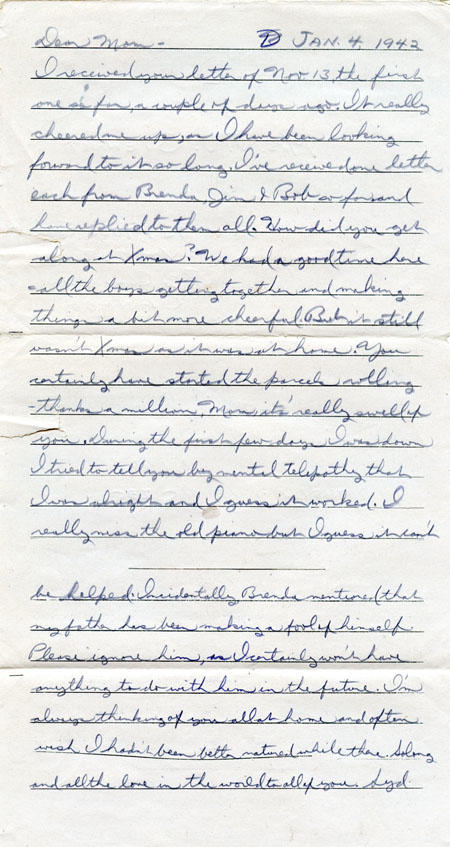 Dear Mom - JAN. 4. 1942
I received your letter of Nov 13, the first
one so far, a couple of days ago. It really
cheered me up, as I have been looking
forward to it so long. I've received one letter
each from Brenda, Jim & Bob so far and
have replied to them all. How did you get
along at Xmas? We had a good time here
- all the boys getting together and making
things a bit more cheerful. But it still
wasn't Xmas as it was at home. You
certainly have started the parcels rolling
- thanks a million, Mom, it's really swell of
you. During the first few days I was down
I tried to tell you by mental telepathy that
I was alright and I guess it worked. I
really miss the old piano but I guess it can't
be helped. Incidentally Brenda mentioned that
my father has been making a fool of himself.
Please ignore him, as I certainly won't have
anything to do with him in the future. I'm
always thinking of you all at home and often
wish I hadn't been better natured while there. So long
and all the love in the world to all of you. Syd.